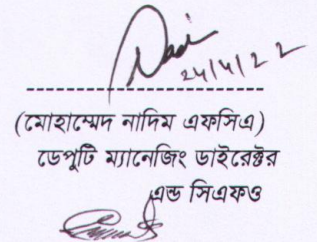 ২৫/৪/২২
(মোহাম্মেদ নাদিম এফসিএ)
ডেপুটি ম্যানেজিং ডাইরেক্টর
এন্ড সিএফও